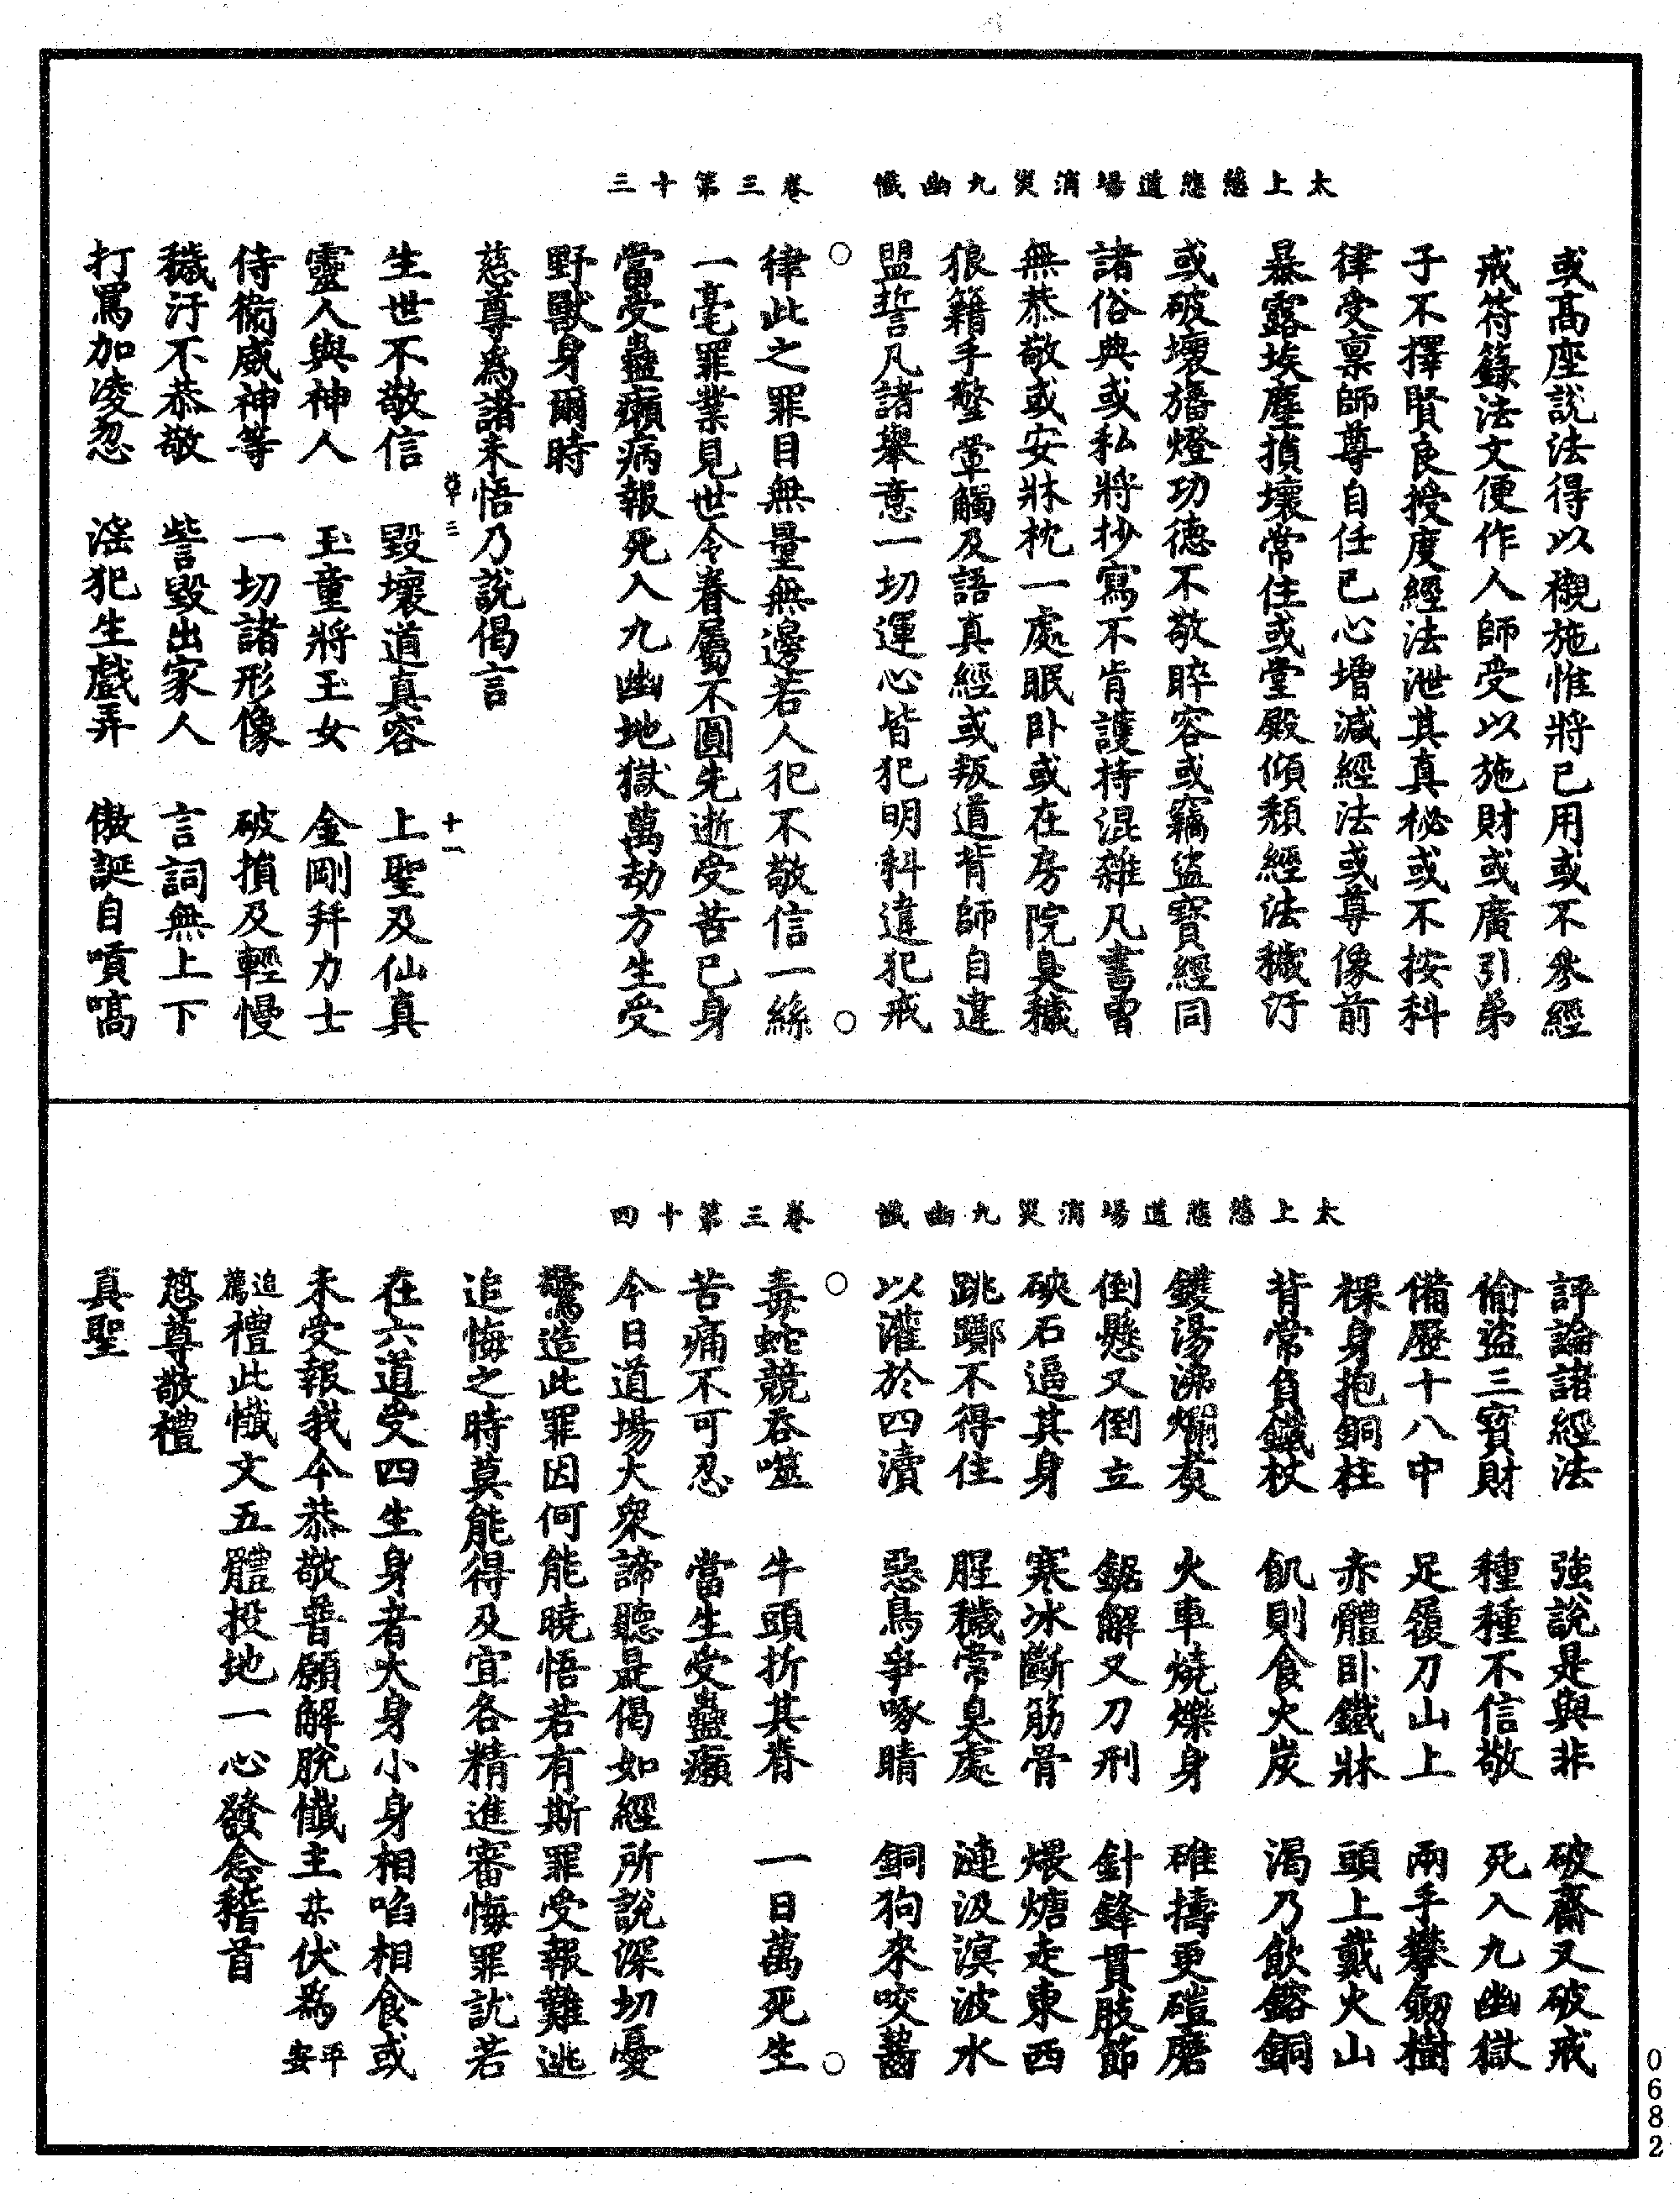 太上慈悲道場消災九幽懺　卷三第十三
或高座說法得以襯施惟將己用或不參經
戒符籙法文便作人師受以施財或廣引弟
子不擇賢良授度經法泄其真秘或不按科
律受稟師尊自任己心增減經法或尊像前
暴露埃塵損壞常住或堂殿傾頹經法穢汙
或破壞旛燈功德不敬睟容或竊盜寶經同
諸俗典或私將抄寫不肯護持混雜凡書曾
無恭敬或安牀枕一處眠臥或在房院臭穢
狼籍手擎葷觸及語真經或叛道背師自違
盟誓凡諸舉意一切運心皆犯明科違犯戒
律此之罪目無量無邊若人犯不敬信一絲
一毫罪業見世令眷屬不圓先逝受苦己身
當受蠱癩病報死入九幽地獄萬劫方生受
野獸身爾時
慈尊為諸未悟乃說偈言
三　十一
生世不敬信　毀壞道真容　上聖及仙真
靈人與神人　玉童將玉女　金剛幷力士
侍衞威神等　一切諸形像　破損及輕慢
穢汙不恭敬　訾毀出家人　言詞無上下
打罵加凌忽　滛犯生戲弄　傲誕自嗊㗥
太上慈悲道場消災九幽懺　卷三第十四
評論諸經法　強說是與非　破齋又破戒
偷盜三寶財　種種不信敬　死入九幽獄
備歷十八中　足履刀山上　兩手攀劒樹
裸身抱銅柱　赤體臥鐵牀　頭上戴火山
背常負鐵杖　飢則食火炭　渴乃飲鎔銅
鑊湯沸爛煑　火車燒爍身　碓擣更磑磨
倒懸又倒立　鋸解又刀刑　針鋒貫肢節
硤石逼其身　寒冰斷筋骨　煨煻走東西
跳躑不得住　腥穢常臭處　漣汲溟波水
以灌於四瀆　惡鳥爭啄睛　銅狗來咬齧
毒蛇競吞噬　牛頭折其脊　一日萬死生
苦痛不可忍　當生受蠱癩
今日道場大衆諦聽是偈如經所說深切憂
驚造此罪因何能曉悟若有斯罪受報難逃
追悔之時莫能得及宜各精進審悔罪訧若
在六道受四生身者大身小身相啗相食或
未受報我今恭敬普願解脫懺主某伏為平安
追薦禮此懺文五體投地一心發念稽首
慈尊敬禮
真聖
0682